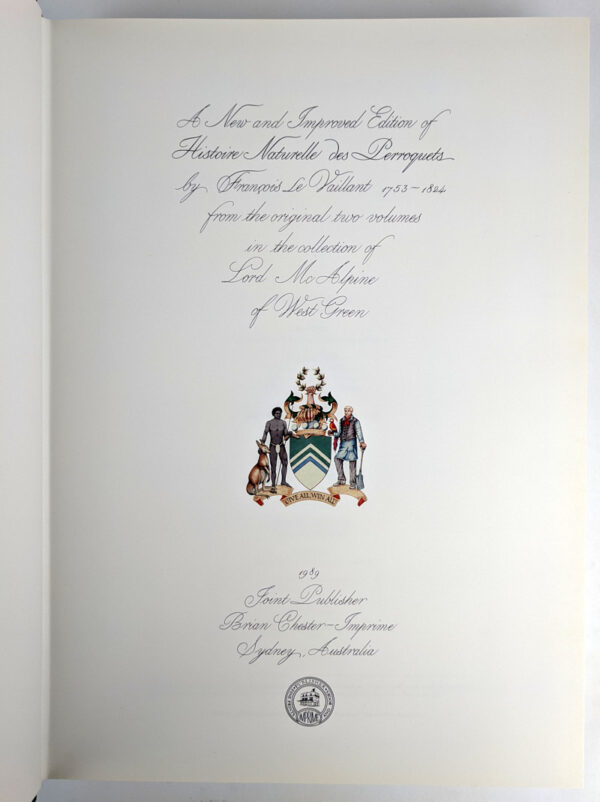 A New and Improved Edition of
Histoire Naturelle des Perroquets
by François Le Vaillant 1753-1824
from the original two volumes
in the collection of
Lord McAlpine
of West Green
GIVE ALL WIN ALL
1989
Joint Publisher
Brian Chester-Imprime
Sydney, Australia
IMPRIME